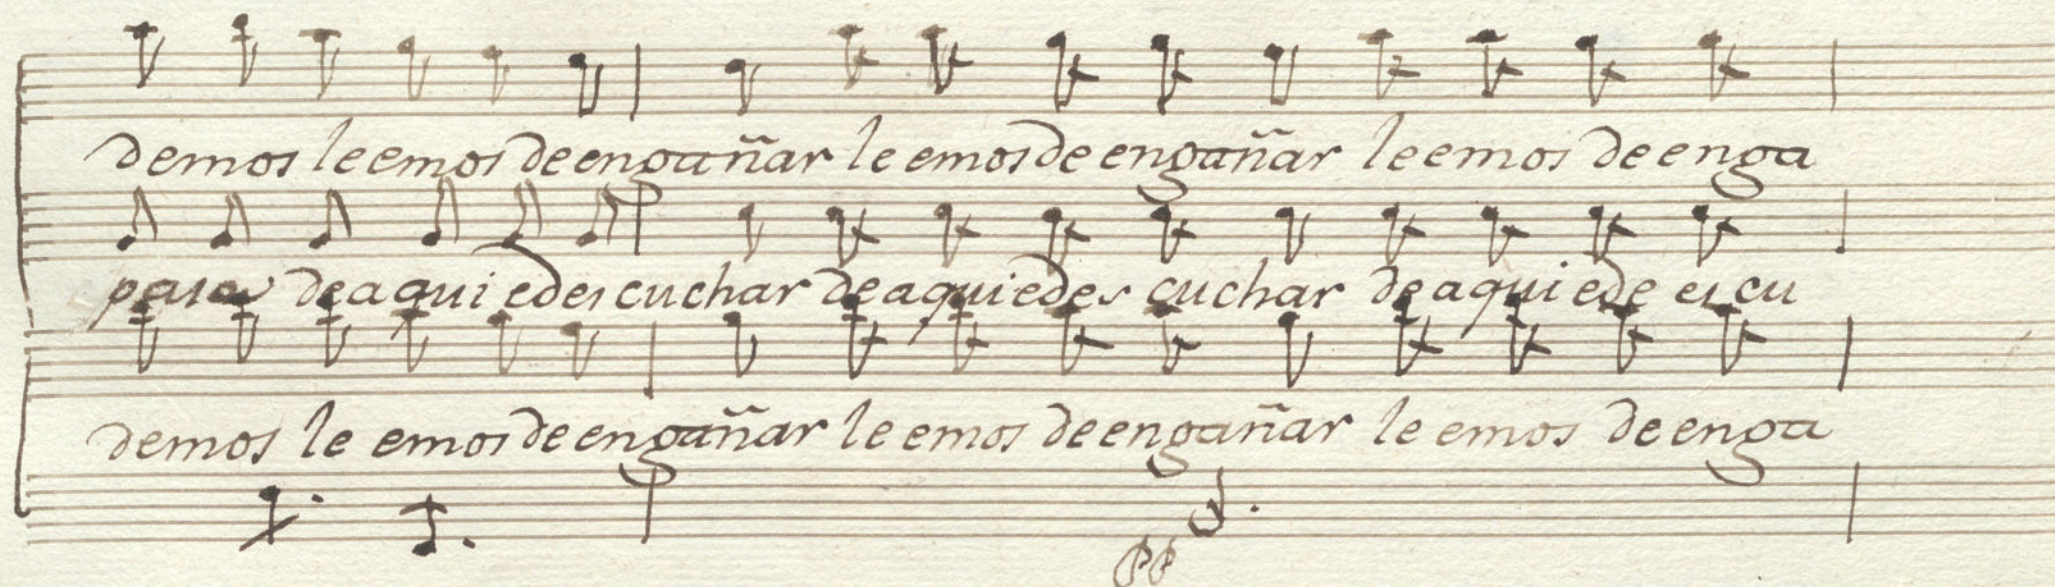 demos le emos de engañar le emos de engañar le emos de enga
pasar de aqui e de escuchar de aqui e des cuchar de aqui e de es cu
demos le emos de engañar le emos de engañar le emos de enga
pp